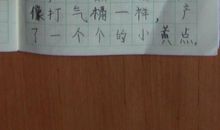 像打气桶一样,产
了一个个的小黄点,